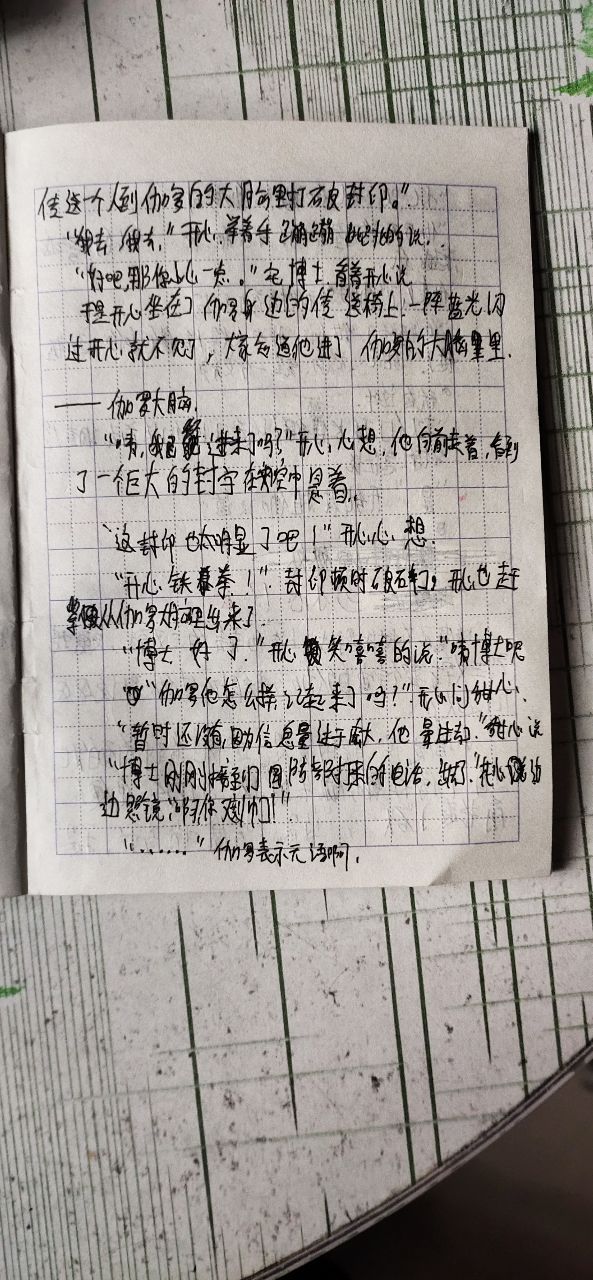 传送一个人到伽罗的大脑里打破封印。”
“我去，我去，”开心举着手蹦蹦的说．
“好吧，那你小心一点。”宅博士看着开心说
于是开心坐在了伽罗身边的传送椅上．一阵蓝光闪
过开心就不见了，大家知道他进了伽罗的大脑里．
——伽罗大脑．
“唷，我已经进来了吗？”开心心想，他向前走着，看到
了一个巨大的封字在空中悬着．
“这封印也太明显了吧！”开心心想．
“开心铁拳！”封印顿时破碎了，开心也赶
从伽罗大脑里出来了
“博士好了．”开心笑嘻嘻的说．“咦博士呢
“伽罗他怎么样，记起来了吗？”开心问甜心．
“暂时还没有，因为信息量过于庞大，他晕过去”甜心说
“博士刚刚接到国防部打来的电话，出去了．”甜心边
“……”伽罗表示无语啊．